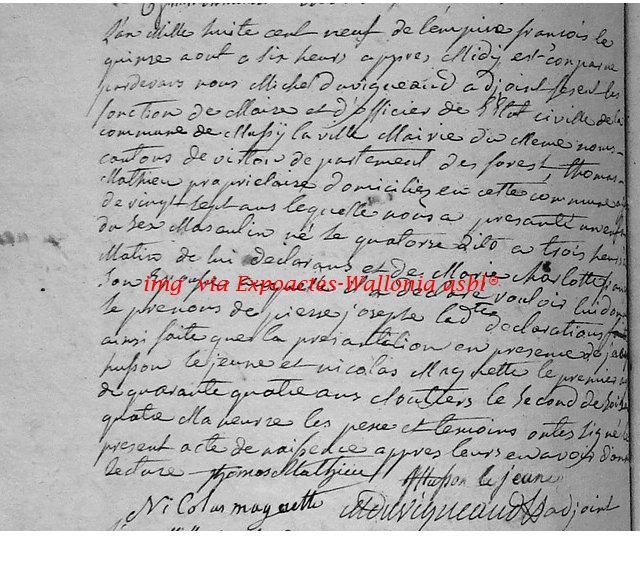 L'an Mille huite cent neuf de l'empire francois le
quinze aout a six heurs appres Midy est comparue
pardevans nous Michel duvigneaud adjoint fesent les
fonction de Maire et d'officier de l'Etat civille de la
commune de Mussÿ la ville Mairie du Meme nom
cantons de virton departement des forest, thomas
Mathieu proprietaire domiciliez en cette commune
de vingt sept ans lequelle nous a presanté un enfant
du sex Masculin né le quatorse dito a trois heurs
Matin de lui declarans et de Marie Charlotte
son Epouse et declaré vouloir lui donner
le prenoms de pierre josephe laditte declarations
ainsi faite que la presantation en presence de
husson le jeune et nicolas Magnette le premier
de quarante quatre ans cloutiers le second de
quatre Maneuvre les pere et temoins ont signé le
present acte de naisence appres leurs en avoir donné
lecture thomas Mathieu AHusson le jeune
Nicolas magnette MDuvigneaud adjoint
img via Expoactes-Wallonia asbl®